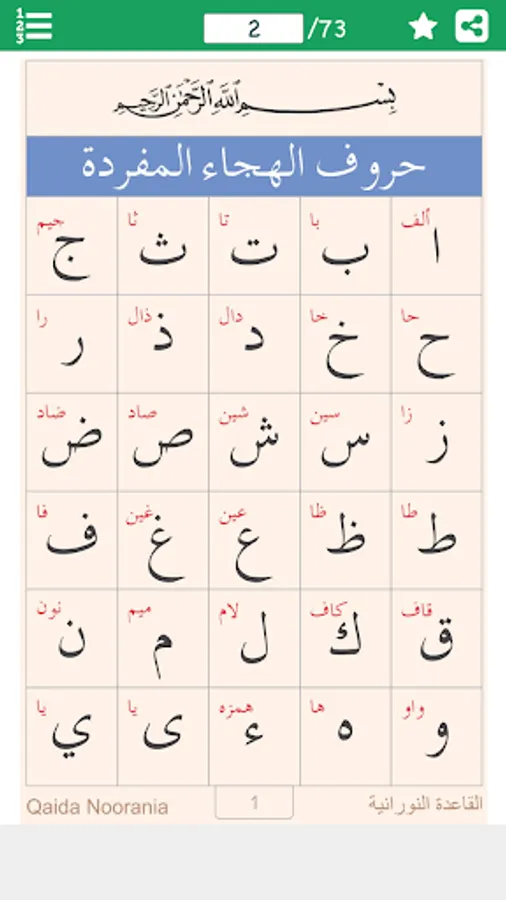 1
2
3
2
/73
بِسْمِ اللَّهِ الرَّحْمَٰنِ الرَّحِيمِ
حروف الهجاء المفردة
ألف با تا ثا جيم
ا ب ت ث ج
حا خا دال ذال را
ح خ د ذ ر
زا سين شين صاد ضاد
ز س ش ص ض
طا ظا عين غين فا
ط ظ ع غ ف
قاف كاف لام ميم نون
ق ك ل م ن
واو ها همزه يا يا
و ه ء ى ي
Qaida Noorania
1
القاعدة النورانية